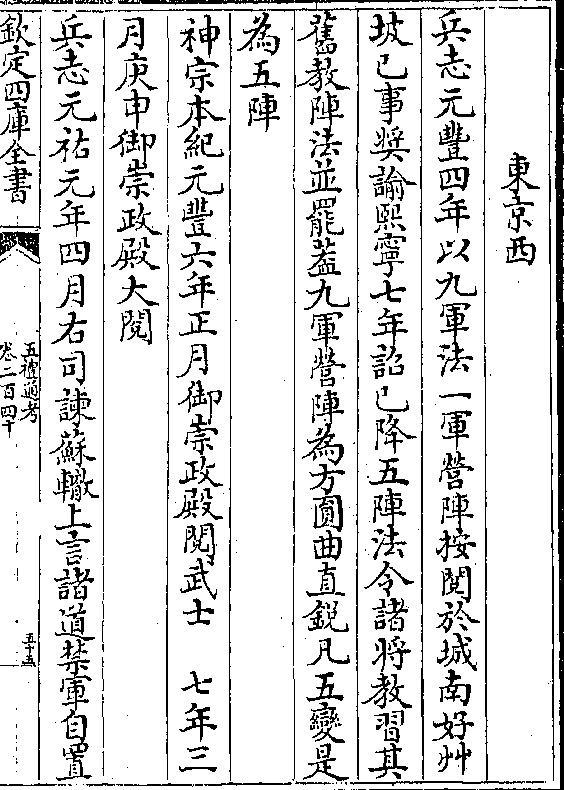 東京西
兵志元豐四年以九軍法一軍營陣按閱於城南好艸
坡已事奬諭熙寧七年詔已降五陣法令諸將教習其
舊教陣法並罷葢九軍營陣為方圓曲直銳凡五變是
為五陣
神宗本紀元豐六年正月御崇政殿閱武士　七年三
月庚申御崇政殿大閱
兵志元祐元年四月右司諫蘇轍上言諸道禁軍自置
欽定四庫全書
五禮通考
卷二百四十
五十五